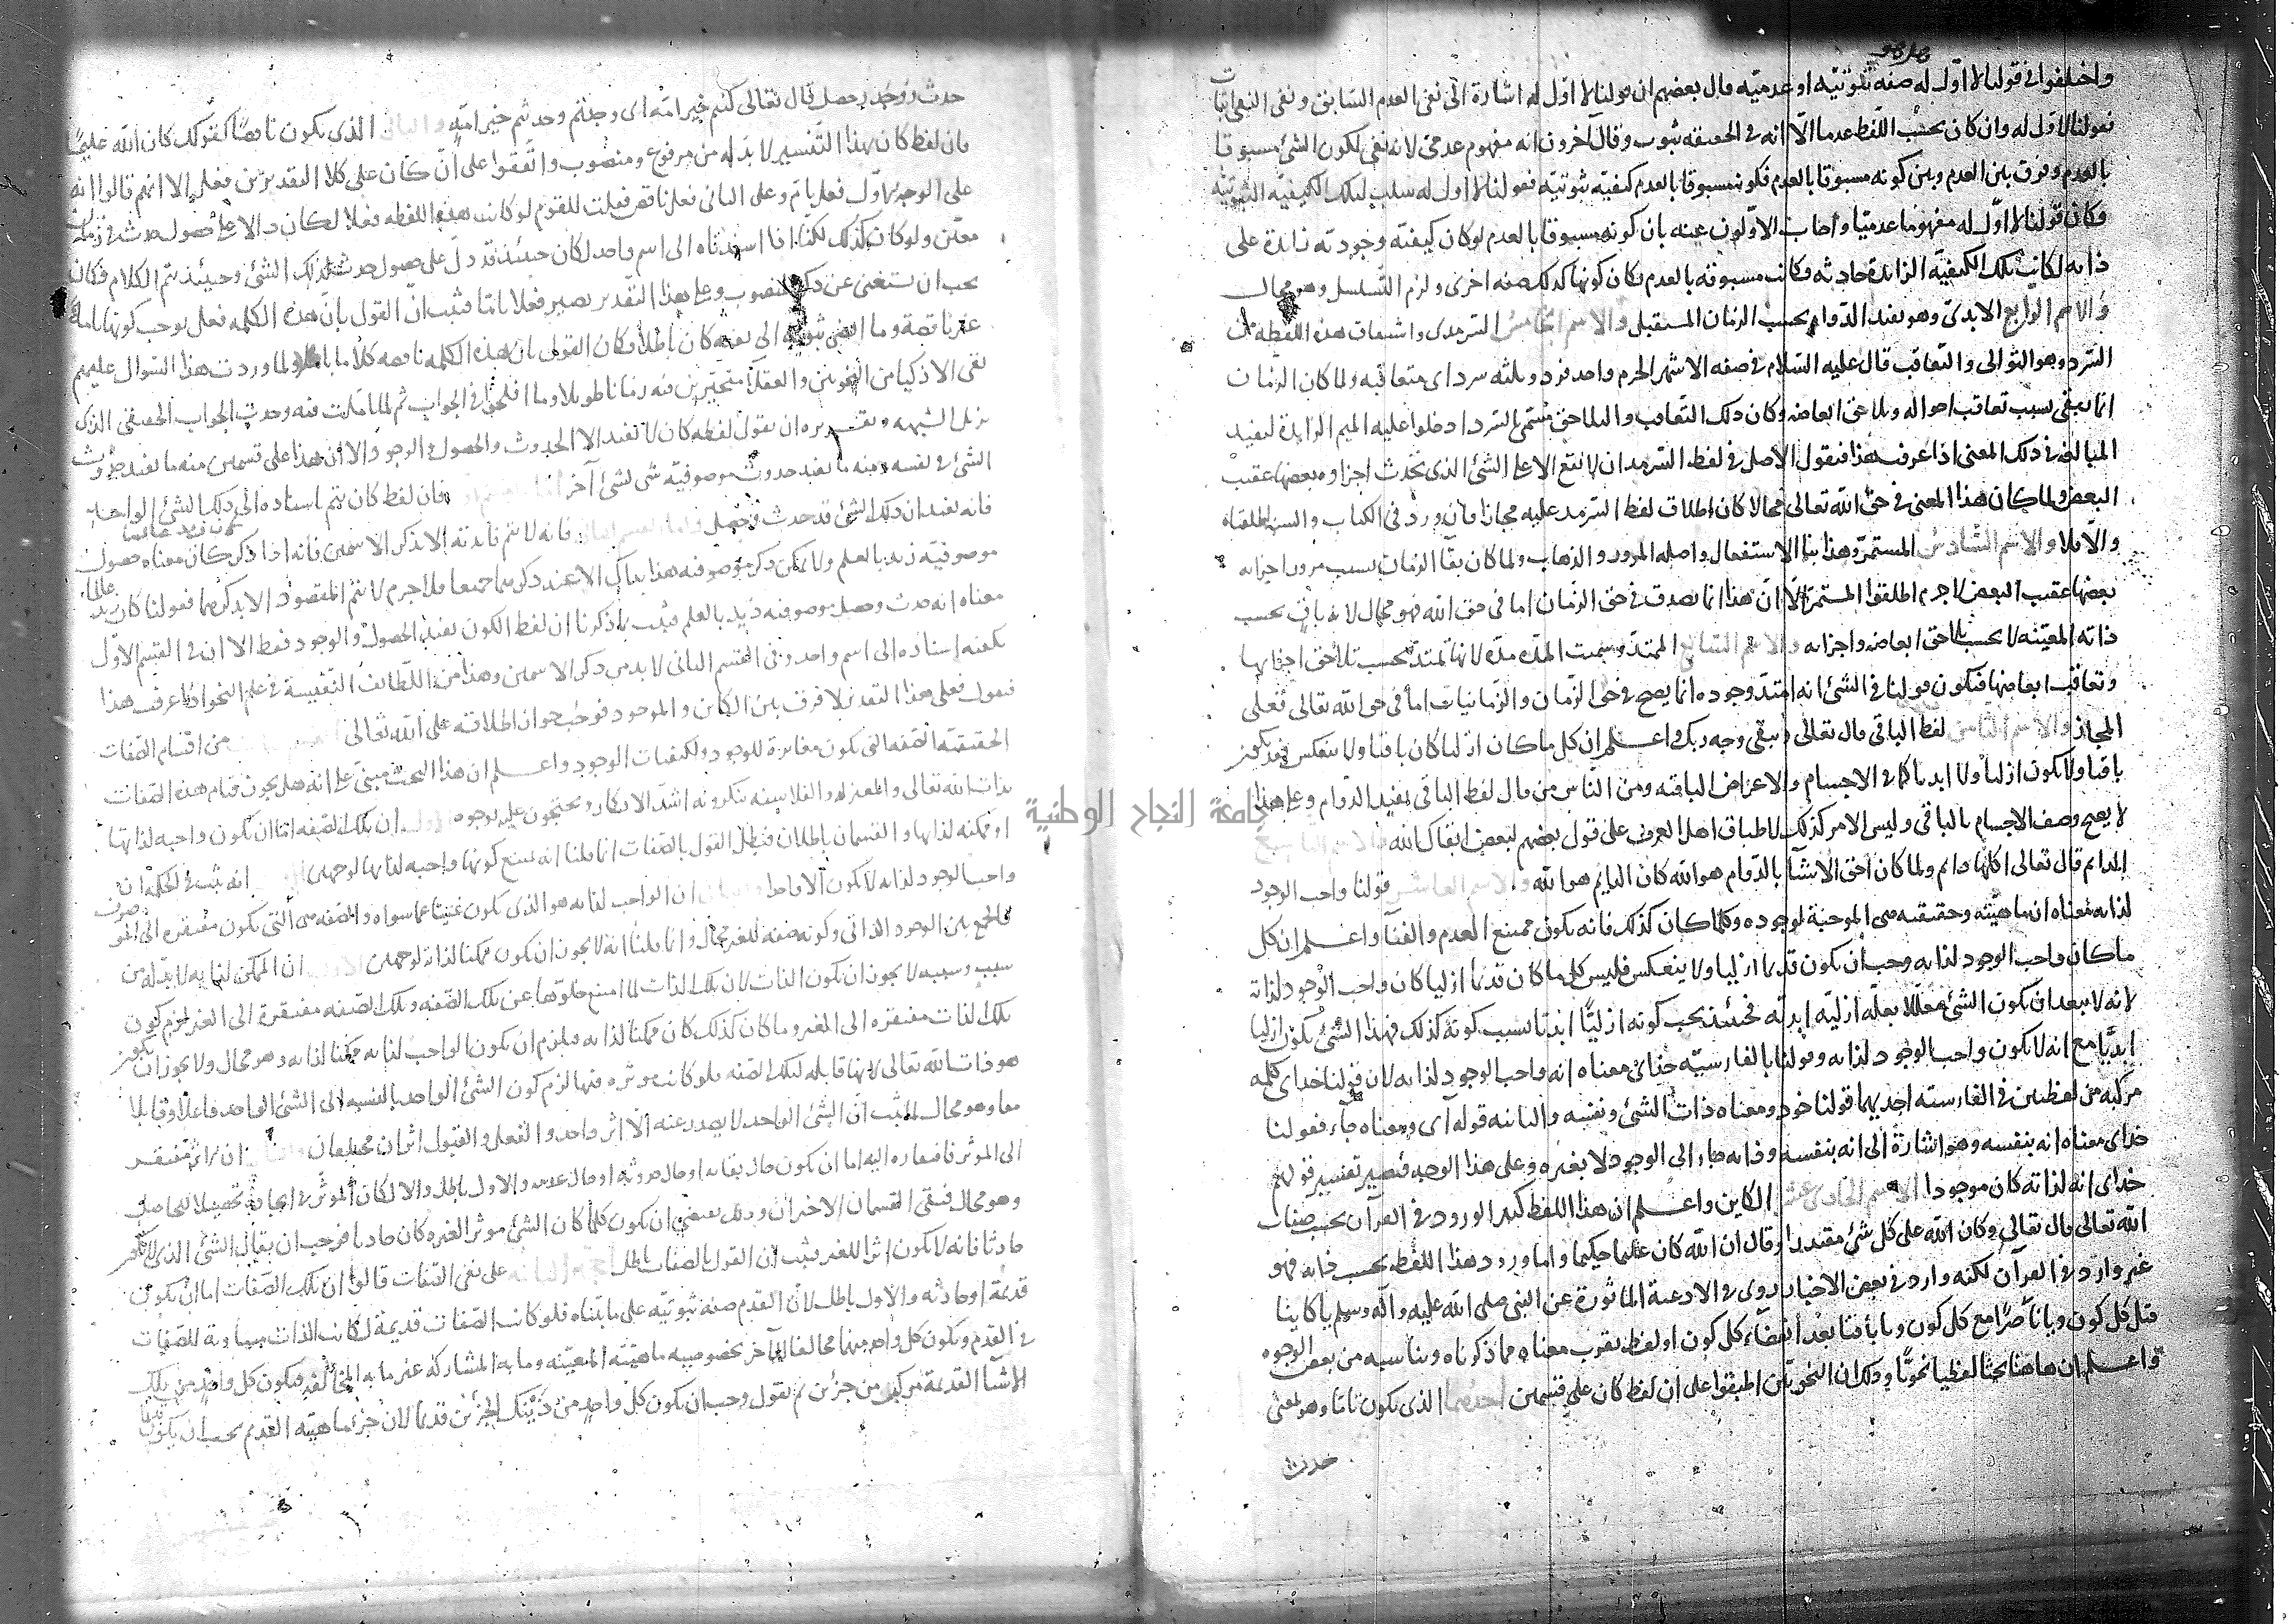 واختلفوا في قولنا لا اول له صفة ثبوتية او عدمية قال بعضهم ان قولنا لا اول له اشارة الى نفي العدم السابق ونفي النفي اثبات
فقولنا لا اول له وان كان بحسب اللفظ عدما الا انه في الحقيقة ثبوت وقال آخرون انه مفهوم عدمي لانه نفي لكون الشئ مسبوقا
بالعدم وفرق بين العدم وبين كونه مسبوقا بالعدم فكونه مسبوقا بالعدم كيفية ثبوتية فقولنا لا اول له سلب لتلك الكيفية الثبوتية
فكان قولنا لا اول له مفهوما عدميا واجاب الاولون عنه بان كونه مسبوقا بالعدم لو كان كيفية وجودية زايدة على
ذاته لكانت تلك الكيفية الزايدة حادثة فكانت مسبوقة بالعدم فكان كونها كذلك صفة اخرى ولزم التسلسل وهو محال
والاسم الرابع الابدي وهو يفيد الدوام بحسب الزمان المستقبل والاسم الخامس السرمدي واشتقاق هذه اللفظة من
السرد وهو التوالي والتعاقب قال عليه السلام في صفة الاشهر الحرم واحد فرد وثلثة سرد اي متعاقبة ولما كان الزمان
انما يبقى بسبب تعاقب احواله وتلاحق ابعاضه وكان ذلك التعاقب والتلاحق مسمى بالسرد ادخلوا عليه الميم الزايدة ليفيد
المبالغة في ذلك المعنى اذا عرفت هذا فنقول الاصل في لفظ السرمد ان لا يقع الا على الشئ الذي تحدث اجزاوه بعضها عقيب
البعض ولما كان هذا المعنى في حق الله تعالى محالا كان اطلاق لفظ السرمد عليه مجازا فان ورد في الكتاب والسنة اطلقناه
والا فلا والاسم السادس المستمر وهذا بنا الاستفعال واصله المرور والذهاب ولما كان بقا الزمان بسبب مرور اجزائه
بعضها عقيب البعض لا جرم اطلقوا المستمر الا ان هذا انما يصدق في حق الزمان اما في حق الله فهو محال لانه باق بحسب
ذاته المعينة لا بحسب تلاحق ابعاضه واجزائه والاسم السابع الممتد وسميت المدة مدة لانها تمتد بحسب تلاحق اجزائها
وتعاقب ابعاضها فيكون قولنا في الشئ انه امتد وجوده انما يصح في حق الزمان والزمانيات اما في حق الله تعالى فعلى
المجاز والاسم الثامن لفظ الباقي قال تعالى ويبقى وجه ربك واعلم ان كل ما كان ازليا كان باقيا ولا ينعكس فقد يكون
باقيا ولا يكون ازليا ولا ابديا كما في الاجسام والاعراض الباقية ومن الناس من قال لفظ الباقي يفيد الدوام وعلى هذا
لا يصح وصف الاجسام بالباقي وليس الامر كذلك لاطباق اهل العرف على قول بعضهم لبعض ابقاك الله والاسم التاسع
الدايم قال تعالى اكلها دايم ولما كان احق الاشيا بالدوام هو الله كان الدايم هو الله والاسم العاشر قولنا واجب الوجود
لذاته معناه ان ماهيته وحقيقته هي الموجبة لوجوده وكلما كان كذلك فانه يكون ممتنع العدم والفنا واعلم ان كل
ما كان واجب الوجود لذاته وجب ان يكون قديما ازليا ولا ينعكس فليس كل ما كان قديما ازليا كان واجب الوجود لذاته
لانه لا يبعد ان يكون الشئ معللا بعلة ازلية ابدية فحينئذ يجب كونه ازليا ابديا بسبب كونه كذلك فهذا الشئ يكون ازليا
ابديا مع انه لا يكون واجب الوجود لذاته وقولنا بالفارسية خداي معناه انه واجب الوجود لذاته لان قولنا خداي كلمة
مركبة من لفظين في الفارسية احديهما قولنا خود ومعناه ذات الشئ ونفسه والثانية قوله آي ومعناه جاء فقولنا
خداي معناه انه بنفسه وهو اشارة الى انه بنفسه وذاته جاء الى الوجود لا بغيره وعلى هذا الوجه فيصير تفسير قولهم
خداي انه لذاته كان موجودا الاسم الحادي عشر الكاين واعلم ان هذا اللفظ كثير الورود في القرآن بحسب صفات
الله تعالى قال تعالى وكان الله على كل شئ مقتدرا وقال ان الله كان عليما حكيما واما ورود هذا اللفظ بحسب ذاته فهو
غير وارد في القرآن لكنه وارد في بعض الاخبار روي في الادعية الماثورة عن النبي صلى الله عليه وآله وسلم يا كاينا
قبل كل كون ويا حاضرا مع كل كون ويا باقيا بعد انقضاء كل كون او لفظ يقرب معناه مما ذكرناه ويناسبه من بعض الوجوه
واعلم ان هاهنا بحثا لفظيا نحويا وذلك ان النحويين اطبقوا على ان لفظ كان على قسمين احدهما الذي يكون تاما وهو بمعنى
حدث
حدث ووجد وحصل قال تعالى كنتم خير امة اي وجدتم وحدثتم خير امة والثاني الذي يكون ناقصا كقولك كان الله عليما
فان لفظ كان بهذا التفسير لا بد له من مرفوع ومنصوب واتفقوا على ان كان على كلا التقديرين فعل الا انهم قالوا انه
على الوجه الاول فعل تام وعلى الثاني فعل ناقص فقلت للقوم لو كانت هذه اللفظة فعلا لكان دالا على حصول حدث في زمان
معين ولو كان كذلك لكنا اذا اسندناه الى اسم واحد لكان حينئذ قد دل على حصول حدث لذلك الشئ وحينئذ تم الكلام فكان
يجب ان يستغني عن ذكر المنصوب وعلى هذا التقدير يصير فعلا تاما فثبت ان القول بان هذه الكلمة فعل يوجب كونها تامة
غير ناقصة وما افضى ثبوته الى نفيه كان باطلا فكان القول بان هذه الكلمة ناقصة كلاما باطلا ولما وردت هذا السوال عليهم
بقي الاذكيا من النحويين والعقلا متحيرين فيه زمانا طويلا وما افلحوا في الجواب ثم لما تاملت فيه وجدت الجواب الحقيقي الذي
يزيل الشبهة وتقريره ان نقول لفظة كان لا تفيد الا الحدوث والحصول والوجود الا ان هذا على قسمين منه ما يفيد حدوث
الشئ في نفسه ومنه ما يفيد حدوث موصوفية شئ لشئ آخر فان لفظ كان يتم باسناده الى ذلك الشئ الواحد
فانه يفيد ان ذلك الشئ قد حدث وحصل فانه لا تتم فائدته الا بذكر الاسمين فانه اذا ذكر كان معناه حصول
كان زيد عالما
موصوفية زيد بالعلم ولا يمكن ذكر موصوفية هذا بذاك الا عند ذكرهما جميعا فلا جرم لا يتم المقصود الا بذكرهما فقولنا كان زيد عالما
معناه انه حدث وحصل موصوفية زيد بالعلم فثبت بما ذكرنا ان لفظ الكون يفيد الحصول والوجود فقط الا ان في القسم الاول
يكفيه اسناده الى اسم واحد وفي القسم الثاني لا بد من ذكر الاسمين وهذا من اللطائف النفيسة في علم النحو اذا عرفت هذا
فنقول فعلى هذا التقدير لا فرق بين الكاين والموجود فوجب جواز اطلاقه على الله تعالى من اقسام الصفات
الحقيقية الصفة التي تكون مغايرة للوجود ولكيفيات الوجود واعلم ان هذا البحث مبني على انه هل يجوز قيام هذه الصفات
بذات الله تعالى والمعتزلة والفلاسفة ينكرونه اشد الانكار ويحتجون عليه بوجوه الاول ان تلك الصفة اما ان تكون واجبة لذاتها
او ممكنة لذاتها والقسمان باطلان فبطل القول بالصفات انما قلنا انه يمتنع كونها واجبة لذاتها لوجهين انه ثبت في الحكمة ان
واجب الوجود لذاته لا يكون الا واحدا ان الواجب لذاته هو الذي يكون غنيا عما سواه والصفة هي التي تكون مفتقرة الى الموصوف
فالجمع بين الوجود الذاتي وكونه صفة للغير محال وانما قلنا انه لا يجوز ان يكون ممكنا لذاته لوجهين الاول ان الممكن لذاته لا بد له من
سبب وسببه لا يجوز ان يكون الذات لان تلك الذات لما امتنع خلوها عن تلك الصفة وتلك الصفة مفتقرة الى الغير لزم كون
تلك الذات مفتقرة الى الغير وما كان كذلك كان ممكنا لذاته فيلزم ان يكون الواجب لذاته ممكنا لذاته وهو محال ولا يجوز ان يكون
هو ذات الله تعالى لانها قابلة لتلك الصفة فلو كانت موثرة فيها لزم كون الشئ الواحد بالنسبة الى الشئ الواحد فاعلا وقابلا
معا وهو محال لما ثبت ان الشئ الواحد لا يصدر عنه الا اثر واحد والفعل والقبول اثران مختلفان ان الاثر مفتقر
الى الموثر فافتقاره اليه اما ان يكون حال بقائه او حال حدوثه او حال عدمه والاول باطل والا لكان الموثر في ايجاده تحصيلا للحاصل
وهو محال فبقي القسمان الاخيران وذلك يقتضي ان يكون كلما كان الشئ موثرا لغيره كان حادثا فوجب ان يقال الشئ الذي لا يكون
حادثا فانه لا يكون اثرا للغير فثبت ان القول بالصفات باطل الحجة الثانية على نفي الصفات قالوا ان تلك الصفات اما ان تكون
قديمة او حادثة والاول باطل لان القدم صفة ثبوتية على ما بيناه فلو كانت الصفات قديمة لكانت الذات مساوية للصفات
في القدم ويكون كل واحد منهما مخالفا للآخر بخصوصية ماهيته المعينة وما به المشاركة غير ما به المخالفة فيكون كل واحد من تلك
الاشيا القديمة مركبا من جزئين ثم نقول وجب ان يكون كل واحد من ذينك الجزئين قديما لان جزء ماهية القديم يجب ان يكون قديما
جامعة النجاح الوطنية